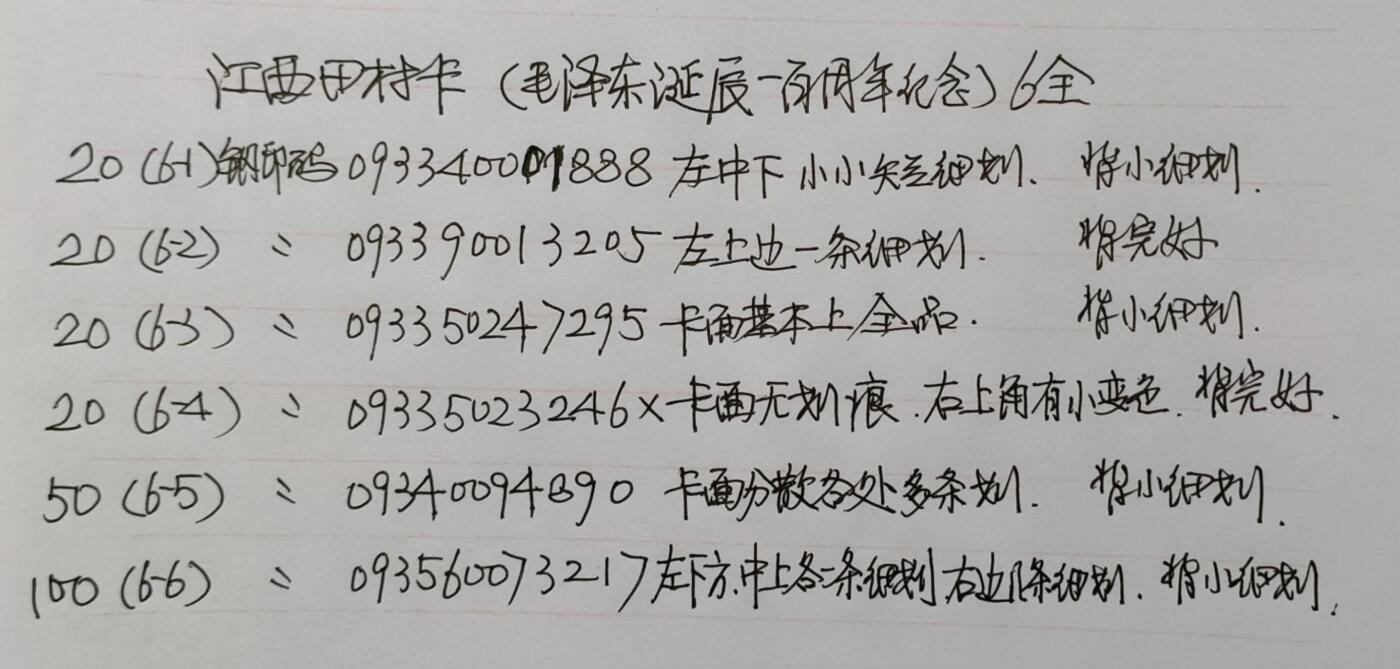 江西田村卡（毛泽东诞辰一百周年纪念）6全
20 (6-1) 钢印码 093340001888 左中下小小短细划. 背小细划.
20 (6-2) 〃 093390013205 左上边一条细划. 背完好
20 (6-3) 〃 093350247295 卡面基本上全品. 背小细划.
20 (6-4) 〃 09335023246× 卡面无划痕.右上角有小变色.背完好.
50 (6-5) 〃 09340094890 卡面分散各处多条划. 背小细划.
100 (6-6) 〃 093560073217 左下方.中上各一条细划,右边1条细划.背小细划.